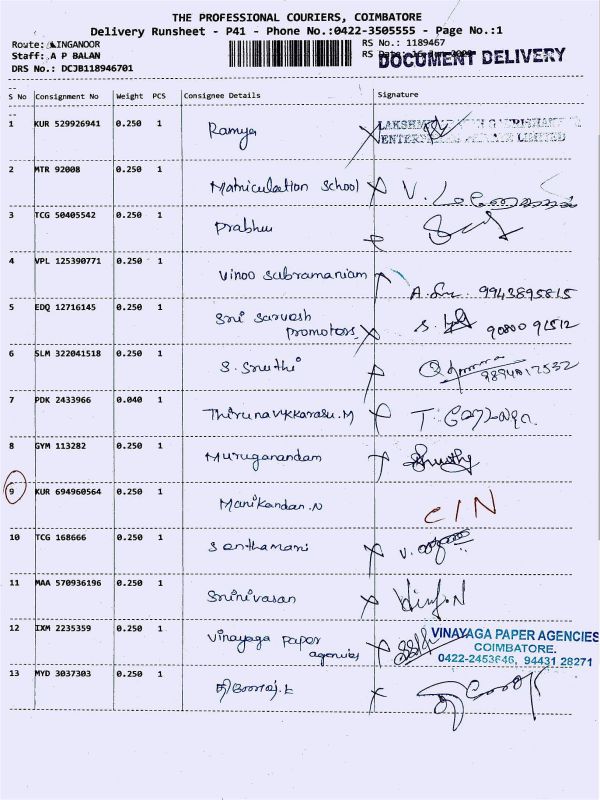 THE PROFESSIONAL COURIERS, COIMBATORE
Delivery Runsheet - P41 - Phone No.:0422-3505555 - Page No.:1
Route: LINGANOOR
RS No.: 1189467
Staff: A P BALAN
RS
DOCUMENT DELIVERY
DRS No.: DCJB118946701
S No Consignment No Weight PCS Consignee Details Signature
1 KUR 529926941 0.250 1 Ramya
LAKSHMI
ENTERPRISES PRIVATE LIMITED
2 MTR 92008 0.250 1 Matriculation School V.
3 TCG 50405542 0.250 1 Prabhu
4 VPL 125390771 0.250 1 Vinoo Subramaniam
9943895815
5 EDQ 12716145 0.250 1 Sri Sarvesh
promotors S. 90800 91512
6 SLM 322041518 0.250 1 S. Sruthi
9894017532
7 PDK 2433966 0.040 1 Thirunavukkarasu.M T.
8 GYM 113282 0.250 1 Muruganandam
9 KUR 694960564 0.250 1 Manikandan.N C/N
10 TCG 168666 0.250 1 Senthamani V.
11 MAA 570936196 0.250 1 Srinivasan
12 IXM 2235359 0.250 1 Vinayaga paper
agencies
VINAYAGA PAPER AGENCIES
COIMBATORE.
0422-2453646, 94431 28271
13 MYD 3037303 0.250 1